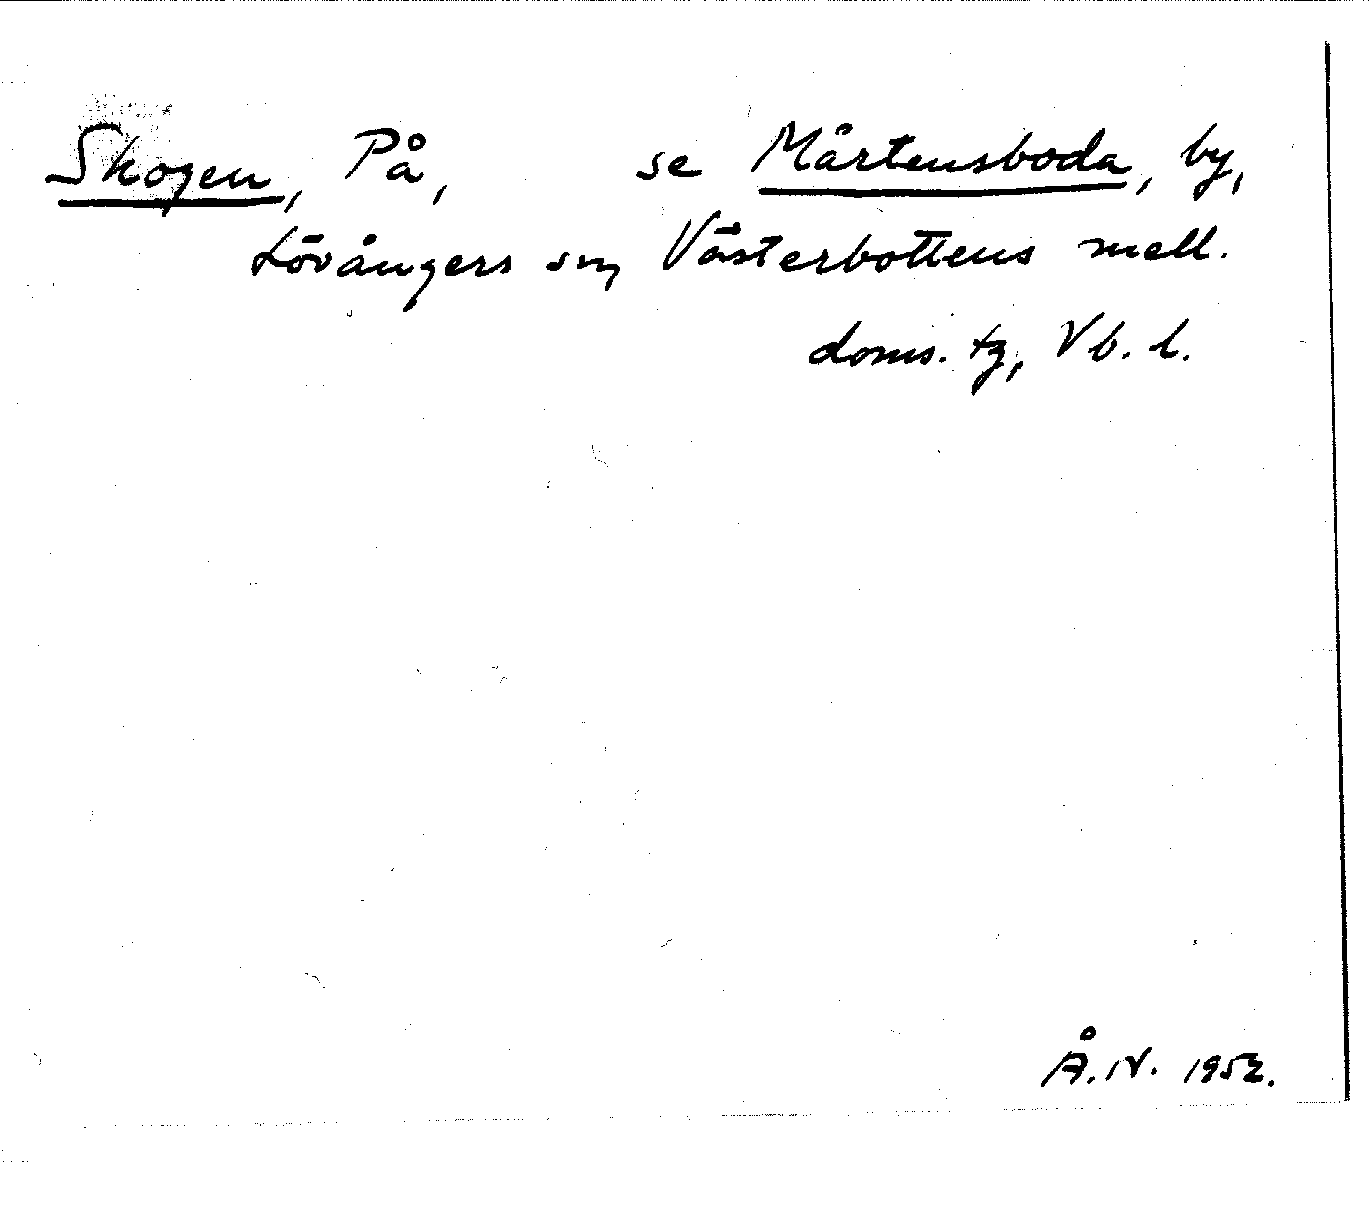 Skogen, På, se Mårtensboda, by,
Lövångers sn, Västerbottens mell.
doms. tg, Vb. l.
Å. N. 1952.